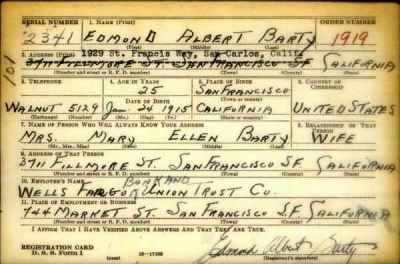 SERIAL NUMBER 1. NAME (Print)
2341 EDMOND ALBERT BARTY 1919
(First) (Middle) (Last)
2. ADDRESS (Print) 1929 St. Francis Way, San Carlos, Calif.
101 3711 FILLMORE ST. SAN FRANCISCO S.F. CALIFORNIA
(Number and street or R. F. D. number) (Town) (County) (State)
3. TELEPHONE 4. AGE IN YEARS 5. PLACE OF BIRTH 6. COUNTRY OF CITIZENSHIP
25 SAN FRANCISCO
DATE OF BIRTH (Town or county)
WALNUT 5129 JAN. 24 1915 CALIFORNIA UNITED STATES
(Exchange) (Number) (Mo.) (Day) (Yr.) (State or country)
7. NAME OF PERSON WHO WILL ALWAYS KNOW YOUR ADDRESS 8. RELATIONSHIP OF THAT PERSON
MRS. MARY ELLEN BARTY WIFE
(Mr., Mrs., Miss) (First) (Middle) (Last)
9. ADDRESS OF THAT PERSON
3711 FILLMORE ST. SAN FRANCISCO S.F. CALIFORNIA
(Number and street or R. F. D. number) (Town) (County) (State)
10. EMPLOYER'S NAME BANK AND
WELLS FARGO UNION TRUST CO.
11. PLACE OF EMPLOYMENT OR BUSINESS
744 MARKET ST. SAN FRANCISCO S.F. CALIFORNIA
(Number and street or R. F. D. number) (Town) (County) (State)
I AFFIRM THAT I HAVE VERIFIED ABOVE ANSWERS AND THAT THEY ARE TRUE.
REGISTRATION CARD
D. S. S. Form 1 Edmond Albert Barty
(Registrant's signature)